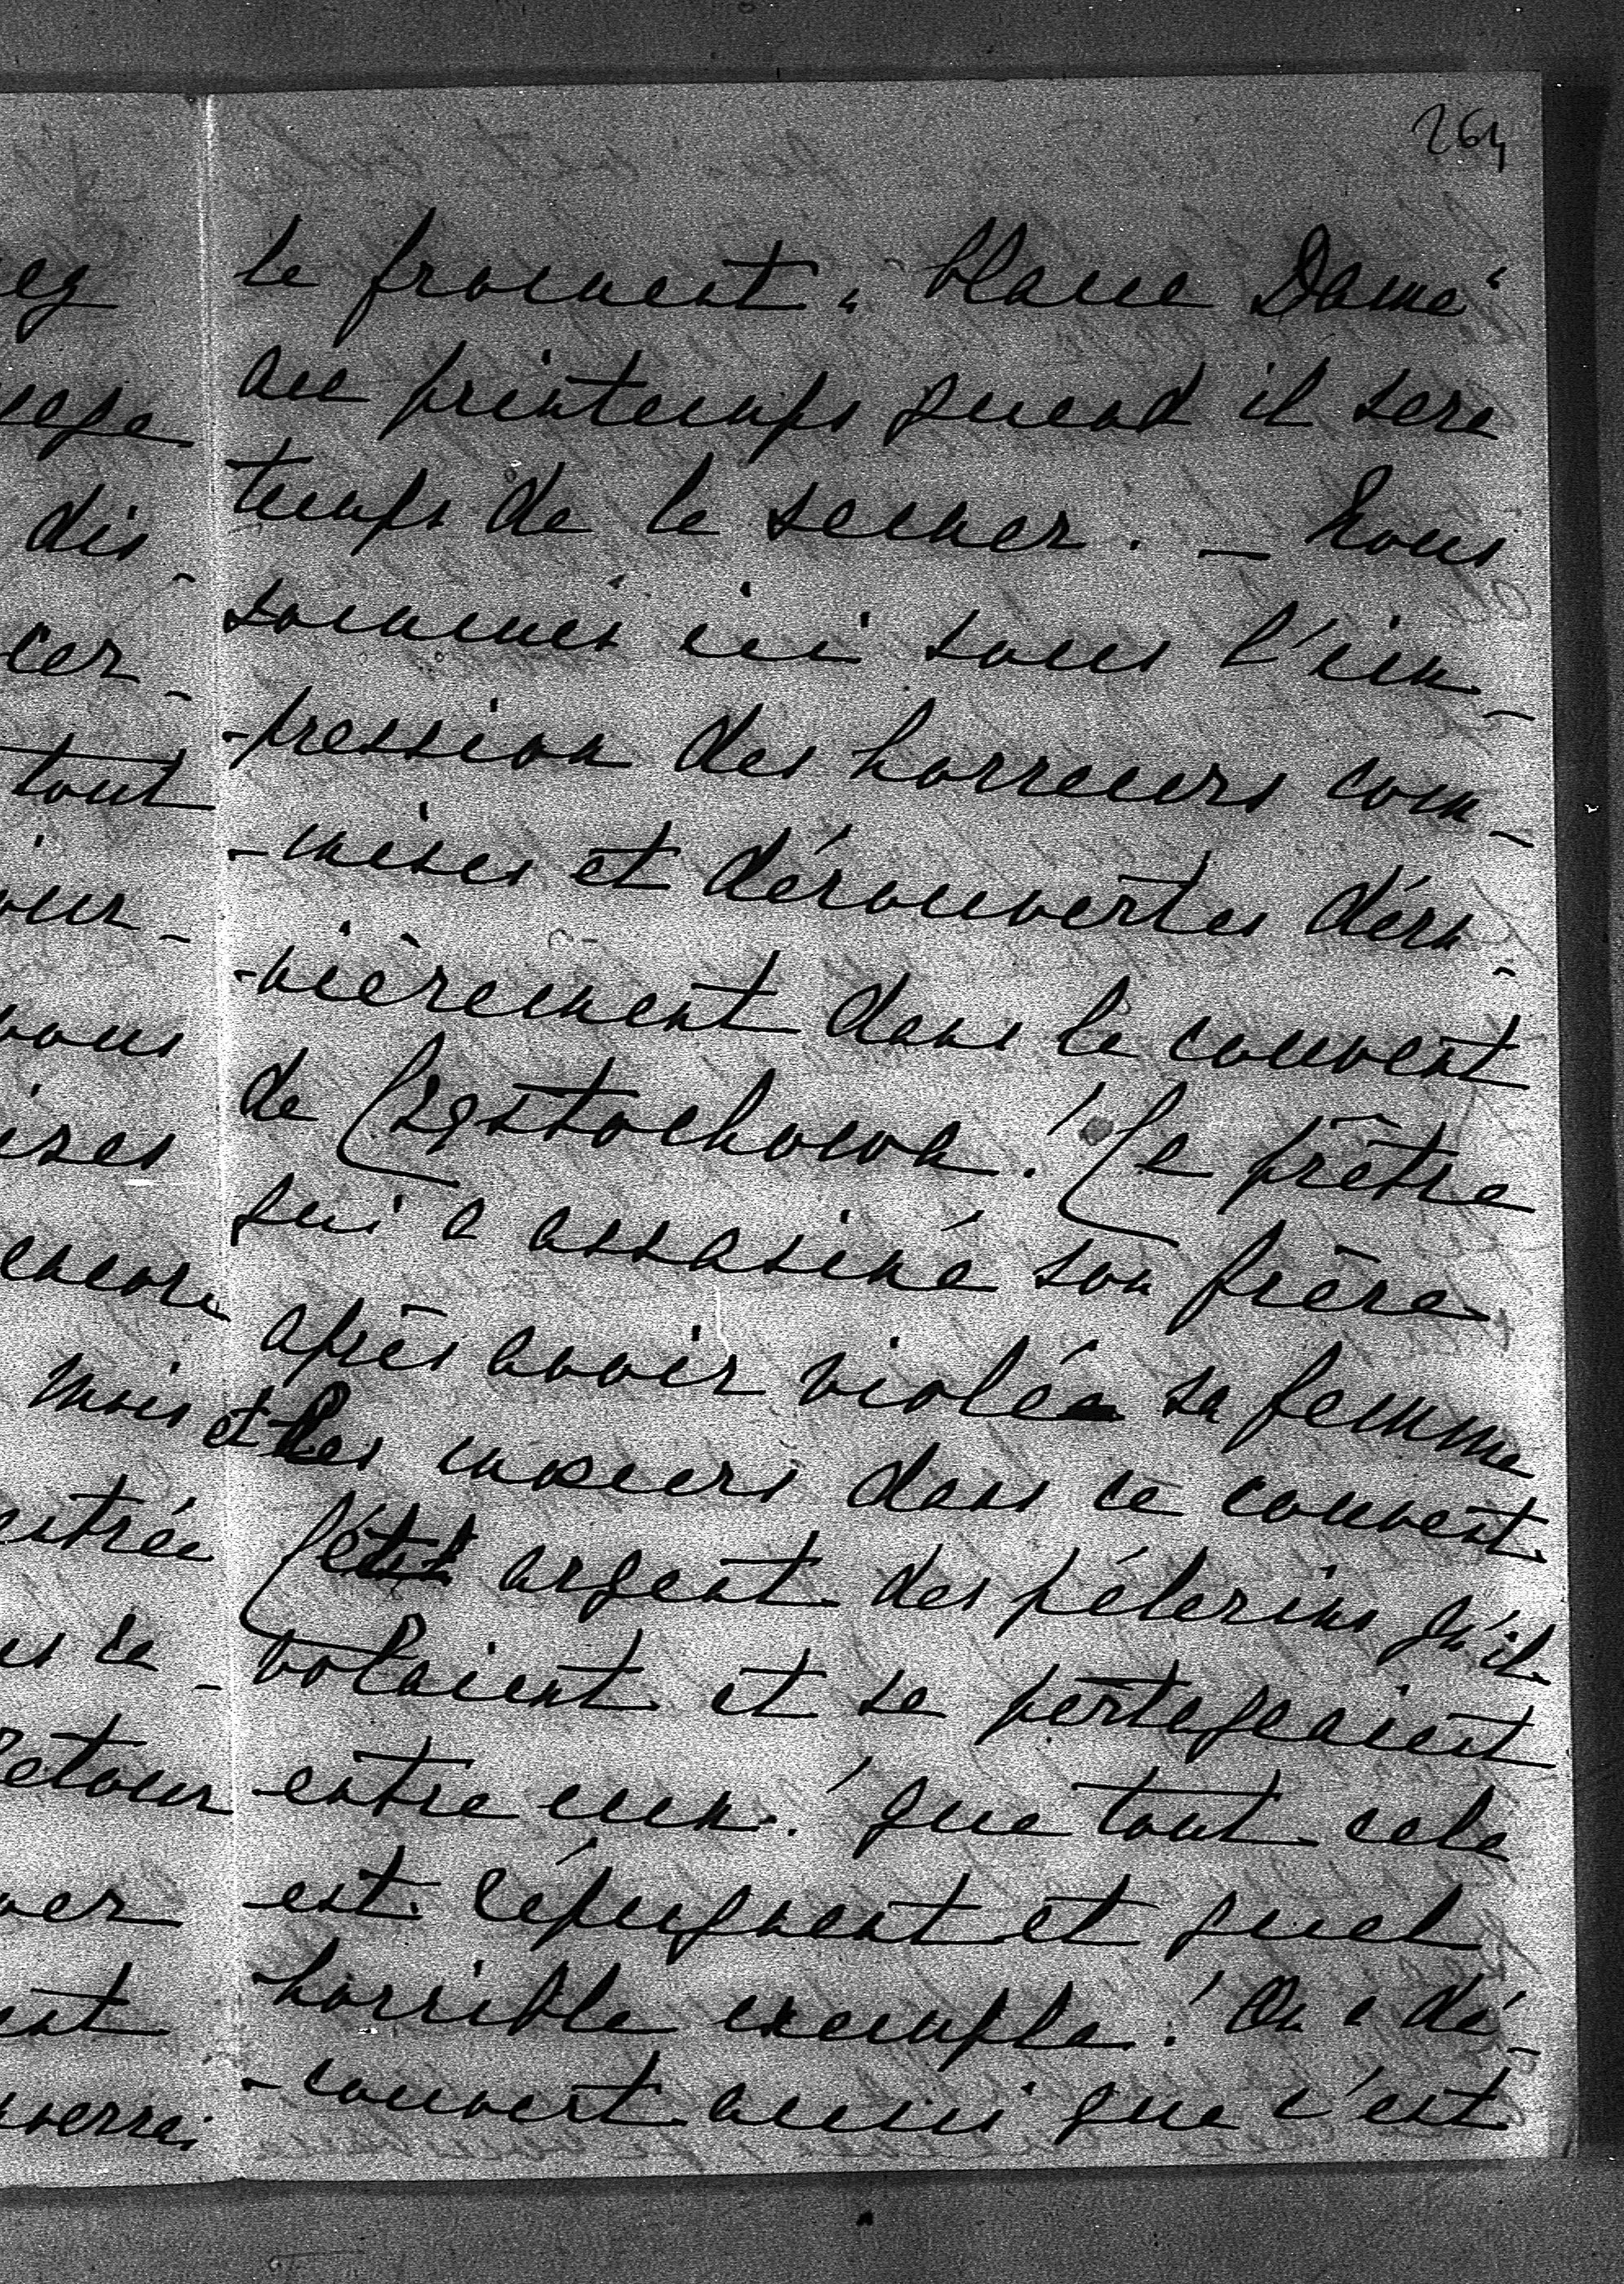 264
le froment "blanc Dame"
au printemps quand il sera
temps de le semer. — Nous
sommes ici sous l'im-
-pression des horreurs com-
-mises et découvertes dern-
-nièrement dans le couvent
de Częstochowa! Le prêtre
qui a assasiné son frère
après avoir violé sa femme
et les mœurs dans ce couvent
Cet argent des pélerins qu'il
volaient et se partageaient
entre eux! que tout cela
est répugnant et quel
horrible exemple! On a dé-
-couvert aussi que c'est
dis-
cer-
tout
vous
encore
mois